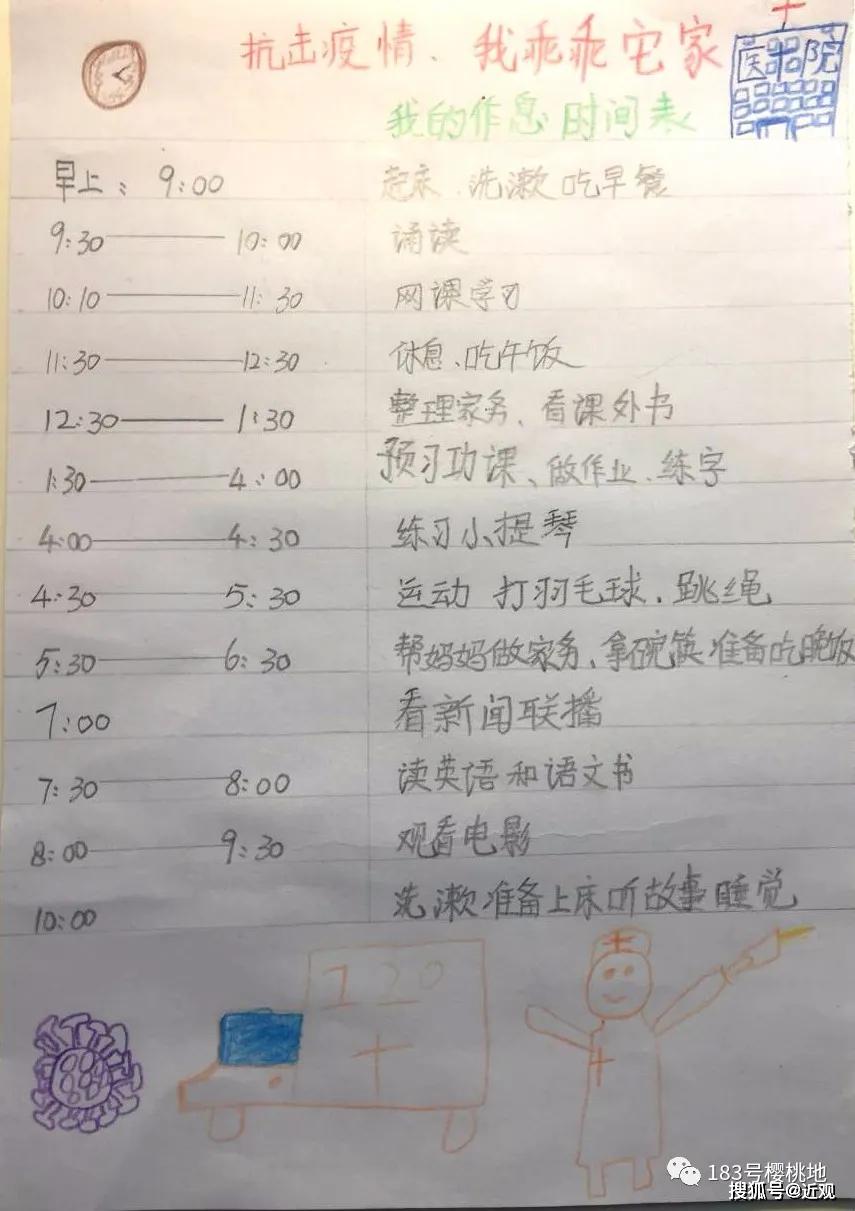 抗击疫情、我乖乖宅家
医院
我的作息时间表
早上：9:00 起床、洗漱 吃早餐
9:30——10:00 诵读
10:10——11:30 网课学习
11:30——12:30 休息、吃午饭
12:30——1:30 整理家务、看课外书
1:30——4:00 预习功课、做作业、练字
4:00——4:30 练习小提琴
4:30——5:30 运动 打羽毛球、跳绳
5:30——6:30 帮妈妈做家务、拿碗筷 准备吃晚饭
7:00 看新闻联播
7:30——8:00 读英语和语文书
8:00——9:30 观看电影
10:00 洗漱准备上床听故事睡觉
120
183号樱桃地
搜狐号@近观